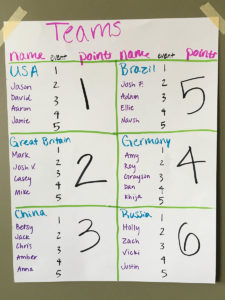 Teams
name event points name event points
USA 1
Jason 2
David 3
Aaron 4
Jamie 5
1
Brazil 1
Josh 2
Adam 3
Ellie 4
5
5
Great Britain
Mark 1
Josh V. 2
Casey 3
Mike 4
5
2
Germany
Amy 1
Roy 2
Grayson 3
Dan 4
5
4
China 1
Betsy 2
Jack
Chris 3
Amber 4
Anna 5
3
Russia 1
Holly 2
Zach 3
Vicki 4
Justin 5
6